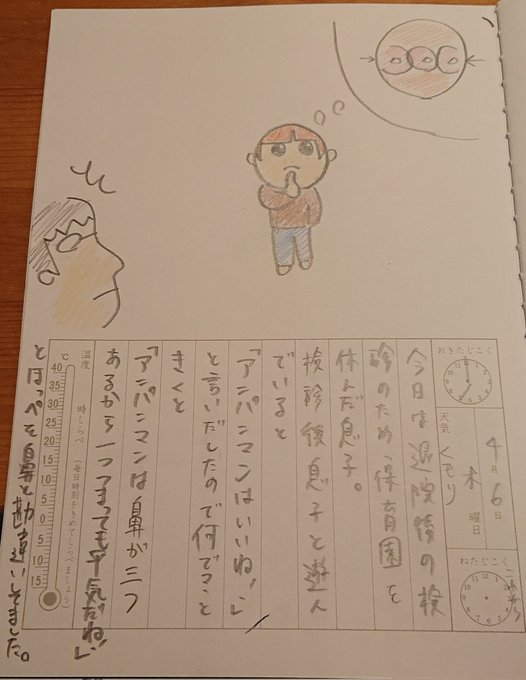 おきたじこく
4月6日
木曜日
天気 くもり
ねたじこく
今日は退院後の検
診のため、保育園を
休んだ息子。
検診後息子と遊ん
でいると
「アンパンマンはいいね！」
と言いだしたので何でってこと
きくと
「アンパンマンは鼻が三つ
あるから一つつまっても平気だね」
とほっぺを鼻と勘違いしてました。
温度
時しらべ
（毎日時刻をきめてしらべましょう）
℃
40
35
30
25
20
15
10
5
0
5
10
15